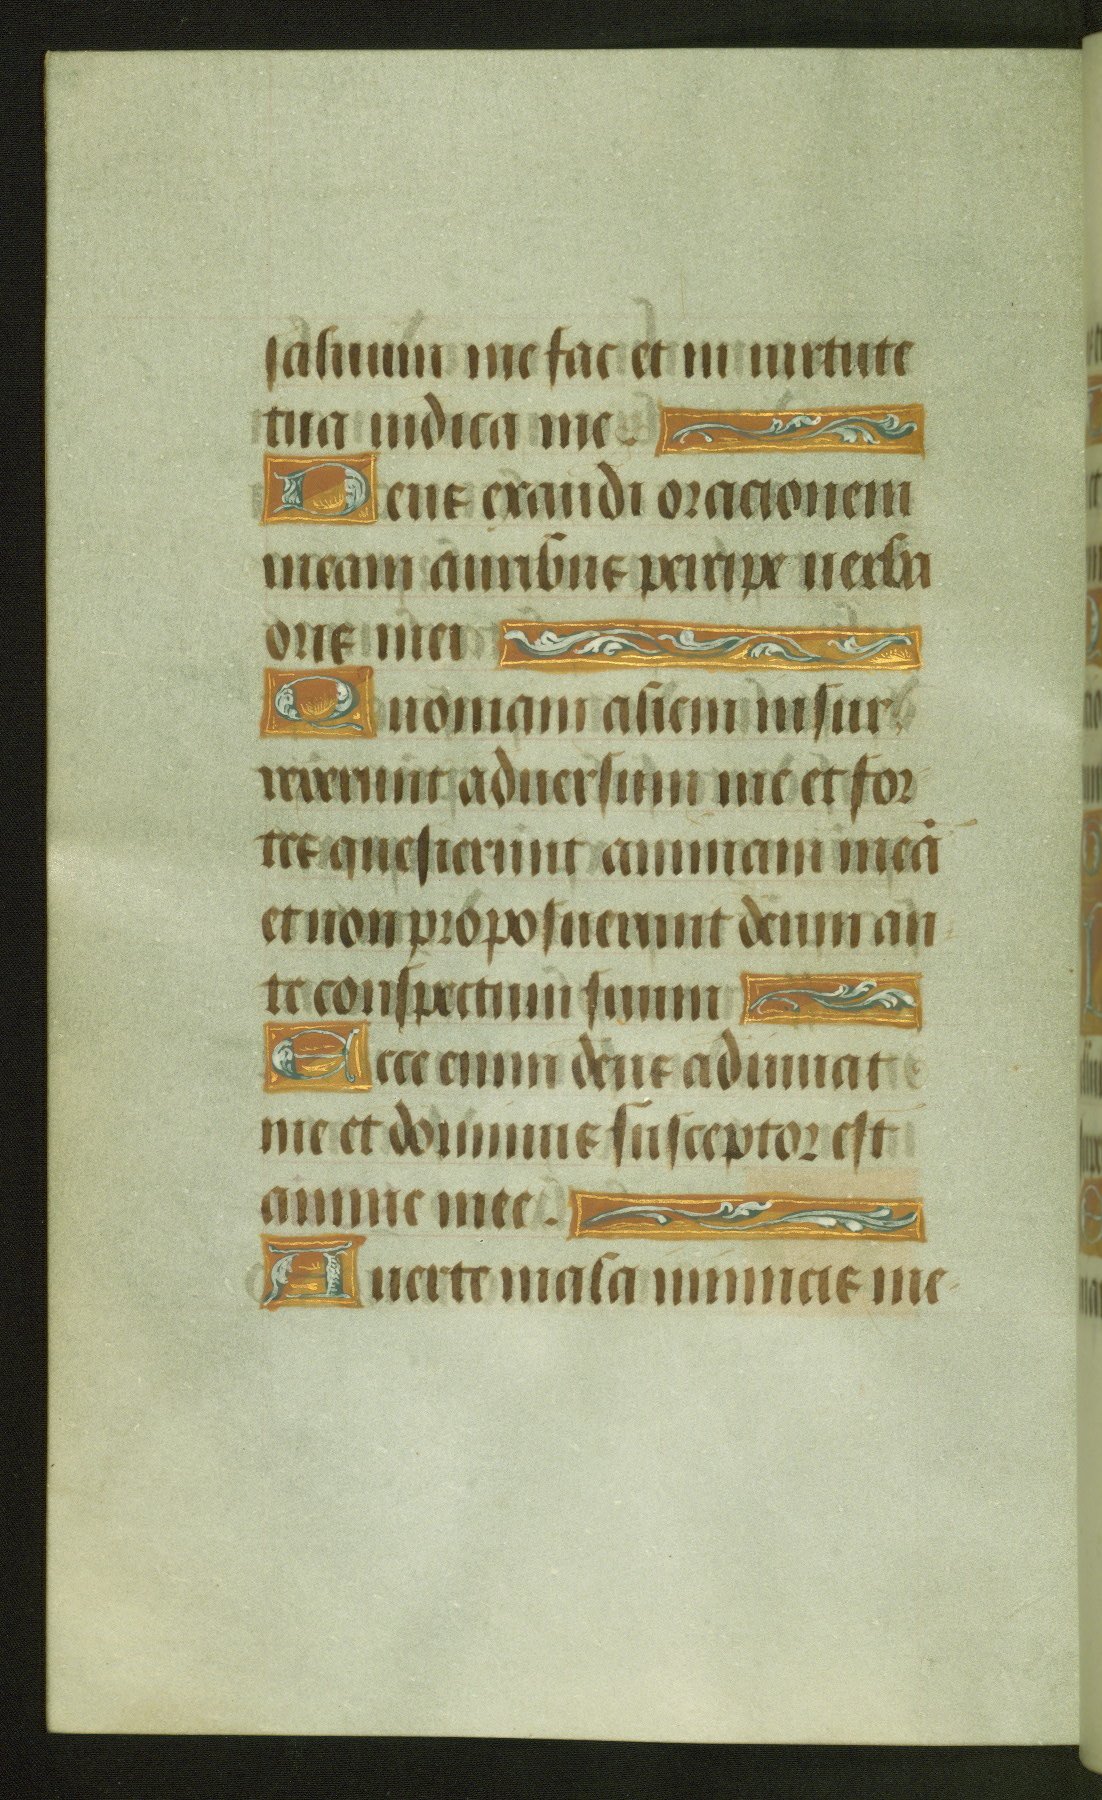 saluum me fac et in uirtute
tua iudica me.
Deus exaudi oracionem
meam auribus percipe uerba
oris mei
Quoniam alieni insur
rexerunt aduersum me et for
tes quesierunt animam meā
et non proposuerunt deum an
te conspectum suum
Ecce enim deus adiuuat
me et dominus susceptor est
anime mee.
Auerte mala inimicis me